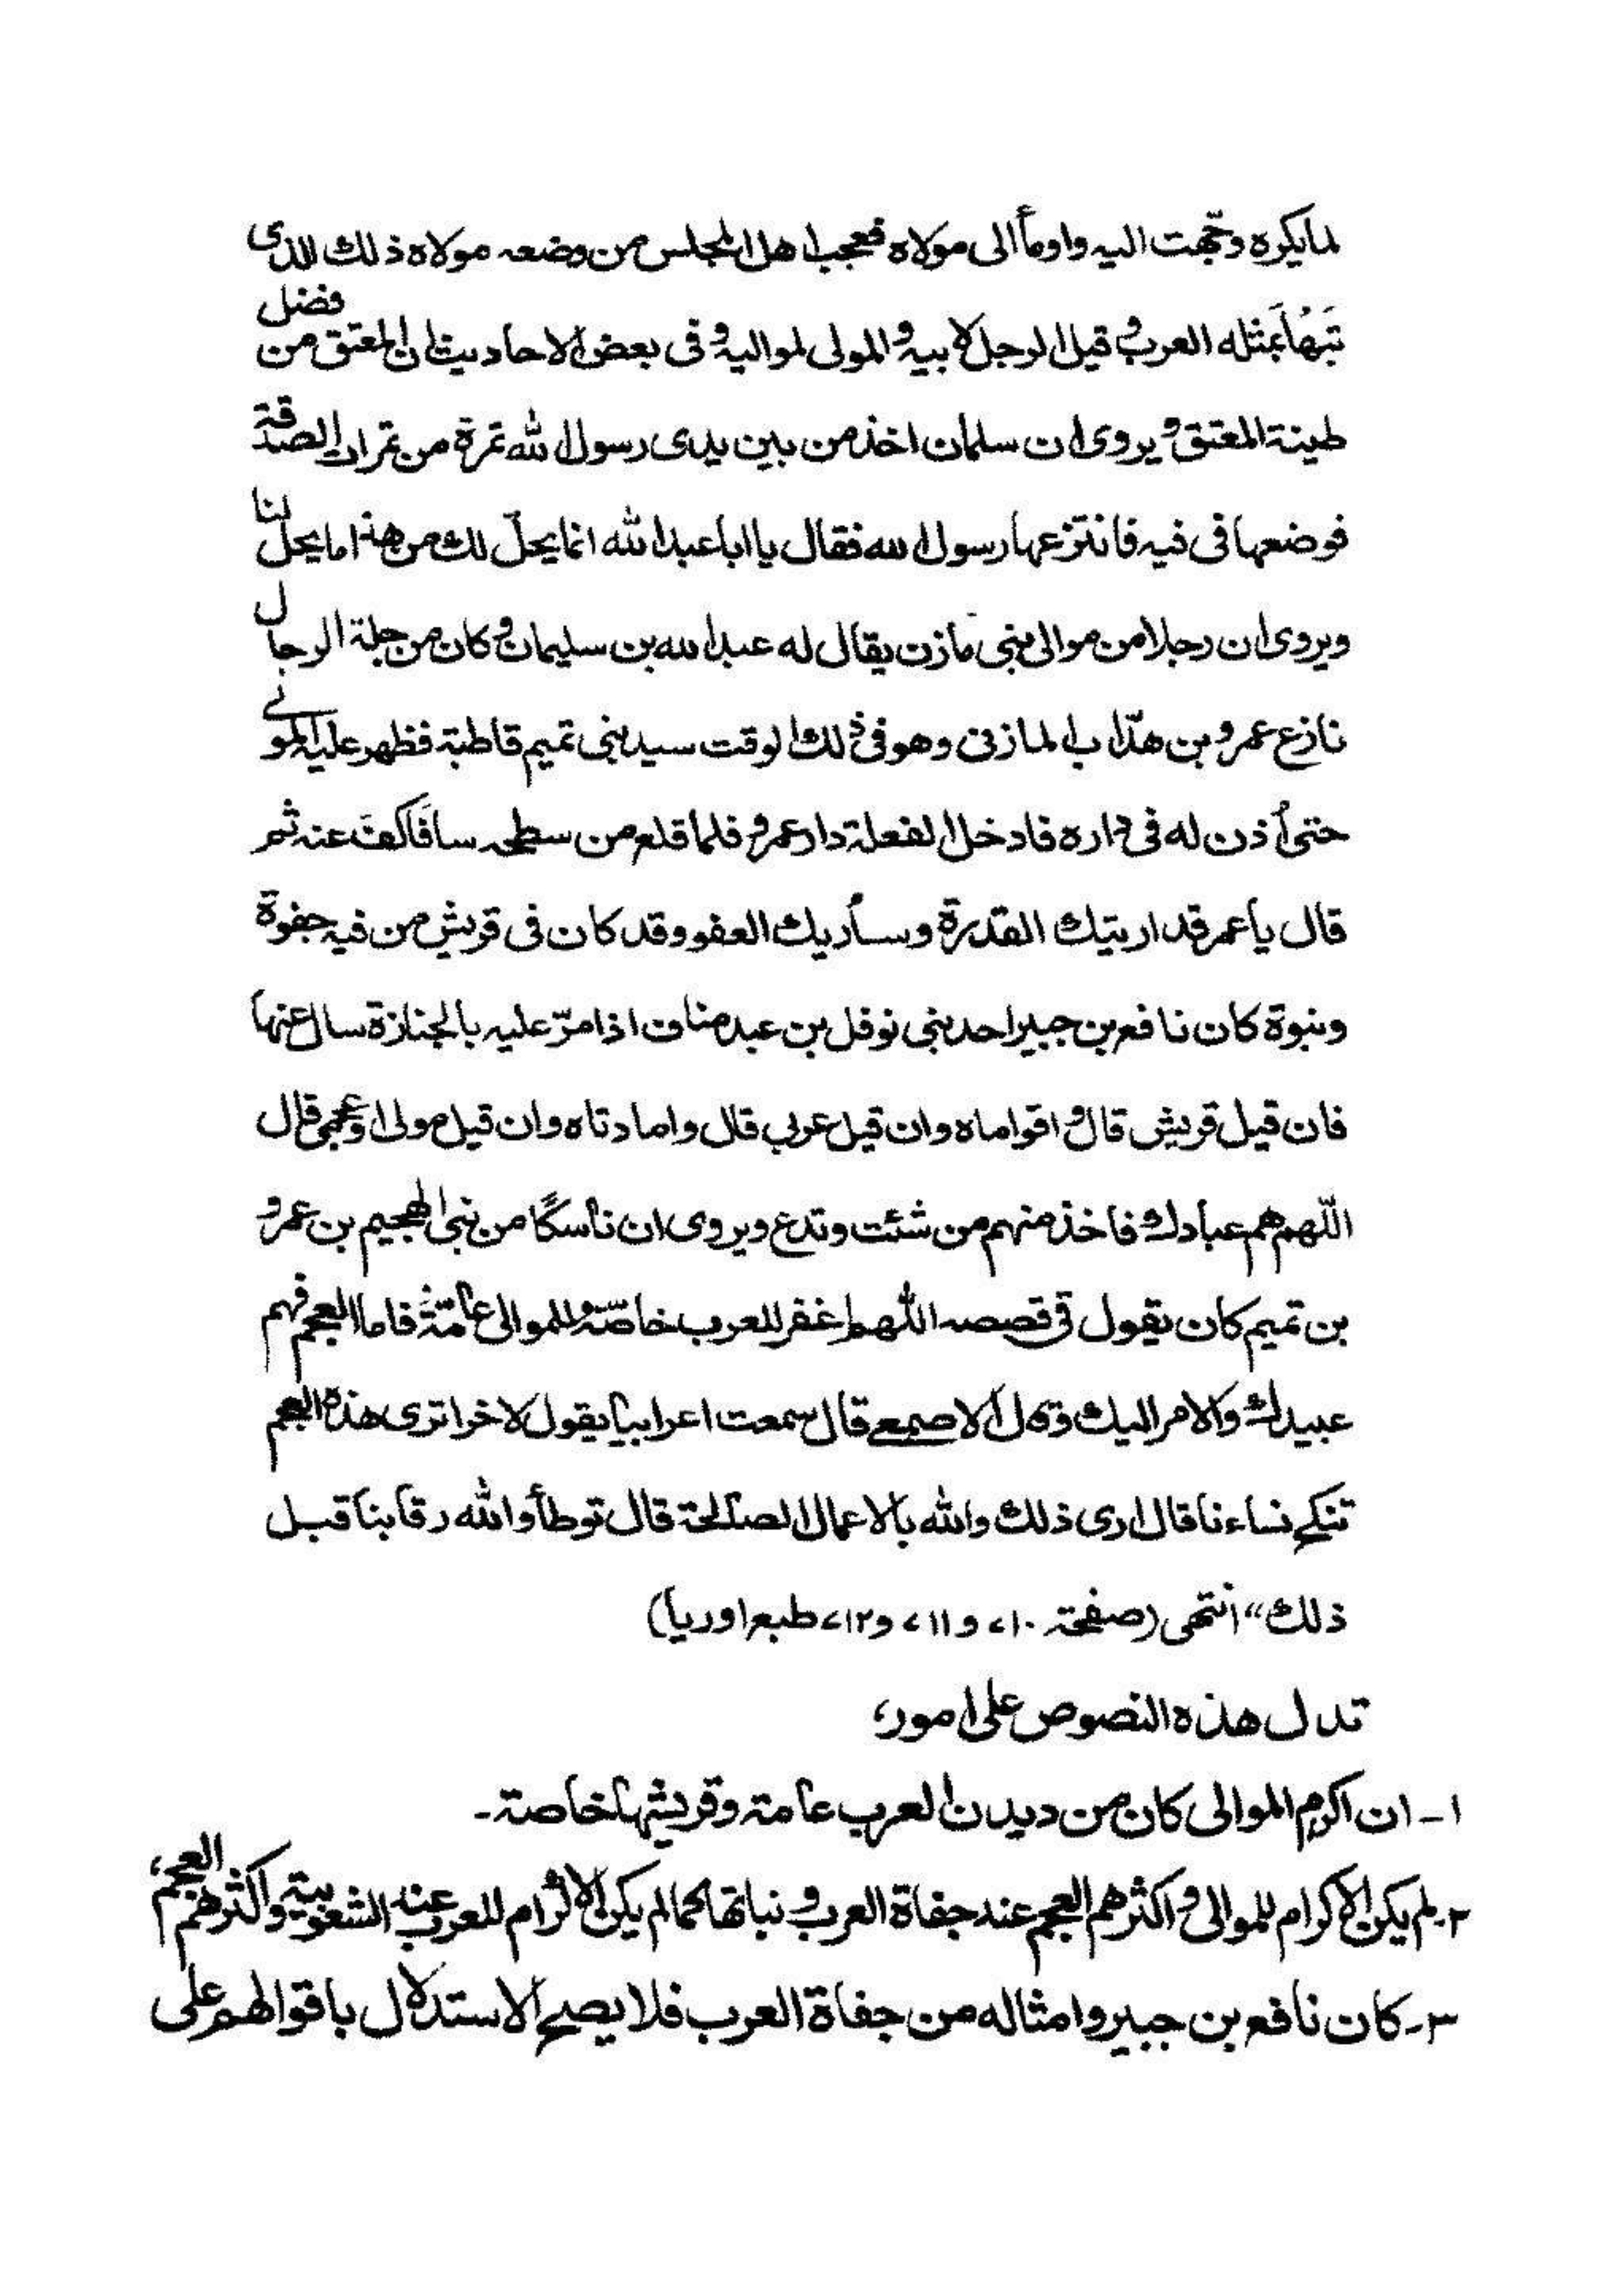 لما يكره وتجهت اليه واومأ الى مولاه فعجب اهل المجلس من وضعه مولاه ذلك الذى
تبَهُاَ بمثله العرب و قيل الرجل لابيه و المولى لمواليه و فى بعض الاحاديث ان المعتق من فضل
طينة المعتق و يروى ان سلمان اخذ من بين يدى رسول الله تمرة من تمرات الصدقة
فوضعها فى فيه فانتزعها رسول الله فقال يا ابا عبد الله انما يحلّ لك من هذا ما يحل لنا
ويروى ان رجلا من موالى بنى مازن يقال له عبد الله بن سليمان و كان من جلة الرجال
نازع عمرو بن هدّاب المازنى وهو فى ذلك الوقت سيد بنى تميم قاطبة فظهر عليه المولے
حتى أذن له فى داره فادخل الفعلة دار عمرو فلما قلع من سطحه سافَا كفَ عنه ثم
قال يا عمر قد اريتك القدرة وسأريك العفو وقد كان فى قريش من فيه جفوة
ونبوة كان نافع بن جبير احد بنى نوفل بن عبد مناف اذا مرّ عليه بالجنازة سال عنها
فان قيل قريش قال و اقواماه وان قيل عربى قال واما دتاه وان قيل مولى او عجمى قال
اللّهم هم عبادك فاخذ منهم من شئت وتدع ويروى ان ناسكًا من بنى الهجيم بن عمرو
بن تميم كان يقول فى قصصه اللّهم اغفر للعرب خاصّة و للموالى عامّةً فاما العجم فهم
عبيدك والامر اليك وقال الاصمعے قال سمعت اعرابيا يقول لاخر اترى هذه العجم
تنكح نساءنا قال ارى ذلك والله بالاعمال الصالحة قال توطأ والله رقابنا قبل
ذلك“ انتهى (صفحة ٧١٠ و ٧١١ و ٧١٢ طبع اوربا)
تدل هذه النصوص على امور؛
١ـ ان اكرام الموالى كان من ديدن العرب عامة وقريشها خاصة۔
٢ـ لم يكن الاكرام للموالى و اكثرهم العجم عند جفاة العرب و نباتها كما لم يكن الاكرام للعرب عند الشعوبية و اكثرهم العجم،
٣ـ كان نافع بن جبير وامثاله من جفاة العرب فلا يصح الاستدلال باقوالهم على